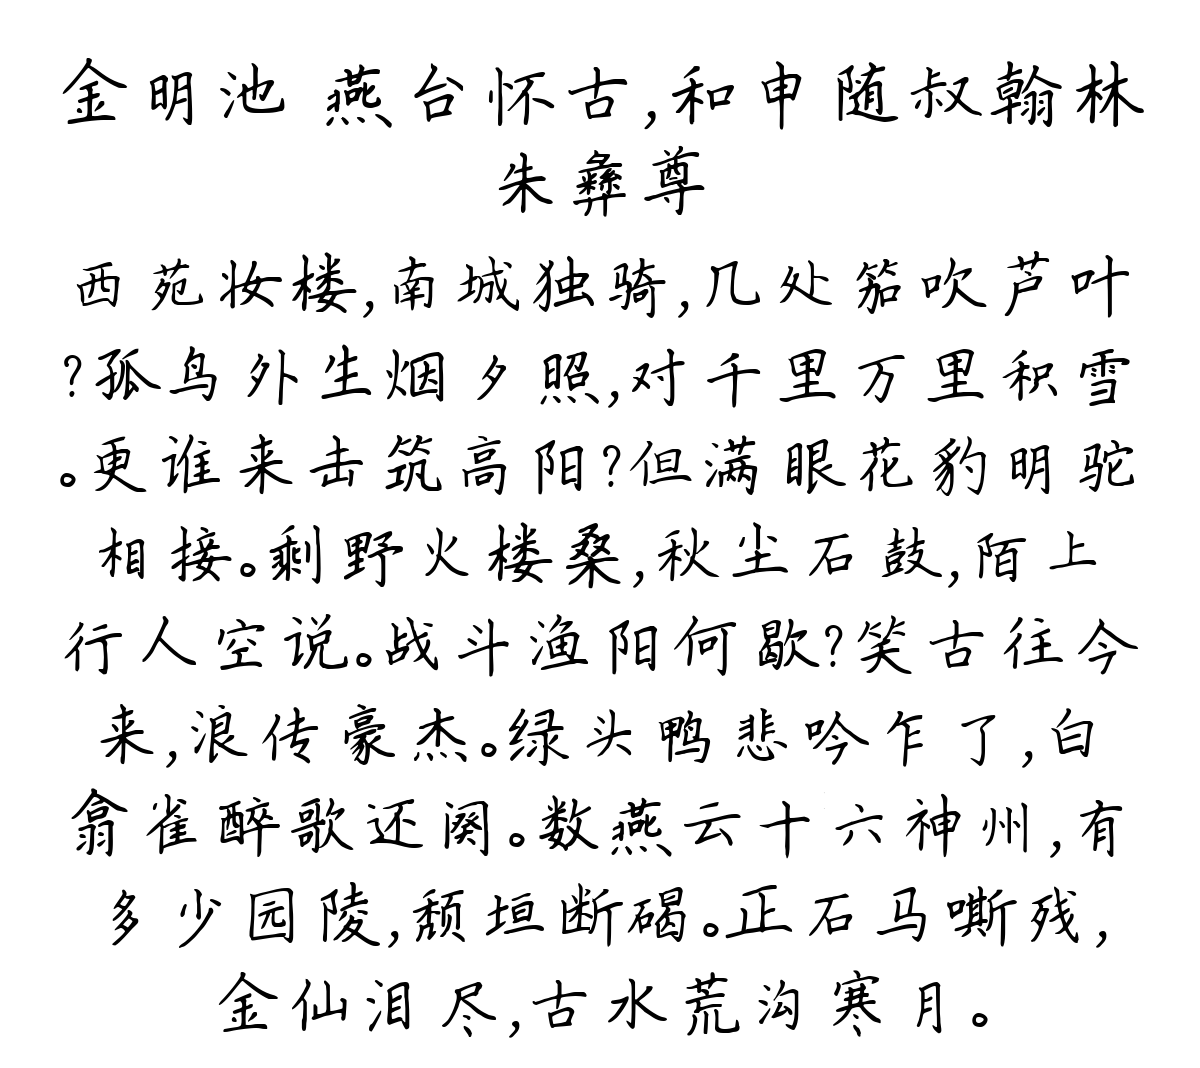 金明池 燕台怀古,和申随叔翰林
朱彝尊
西苑妆楼,南城独骑,几处笳吹芦叶
?孤鸟外生烟夕照,对千里万里积雪
。更谁来击筑高阳?但满眼花豹明驼
相接。剩野火楼桑,秋尘石鼓,陌上
行人空说。战斗渔阳何歇?笑古往今
来,浪传豪杰。绿头鸭悲吟乍了,白
翕雀醉歌还阕。数燕云十六神州,有
多少园陵,颓垣断碣。正石马嘶残,
金仙泪尽,古水荒沟寒月。